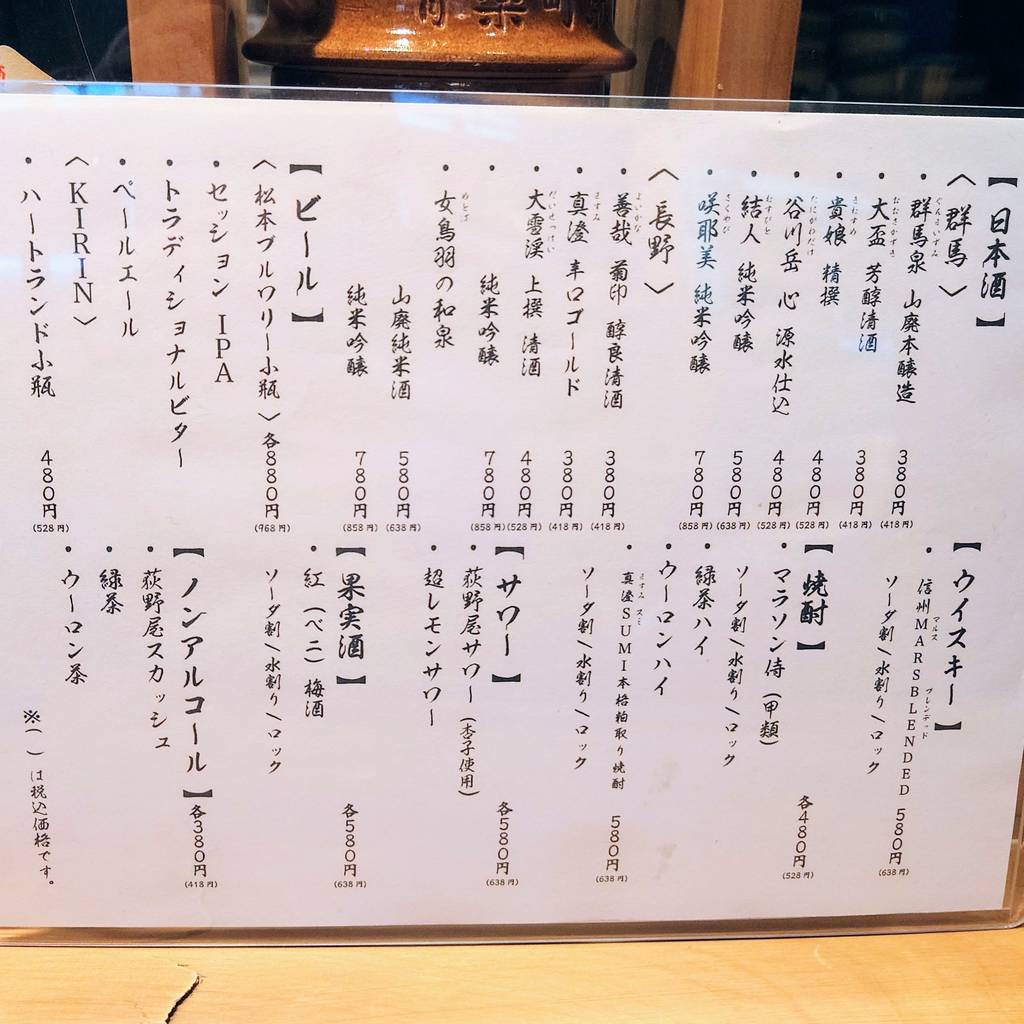 【日本酒】
〈群馬〉
・群馬泉 山廃本醸造 380円 (418円)
ぐんまいずみ
・大盃 芳醇清酒 380円 (418円)
おおさかずき
・貴娘 精撰 480円 (528円)
きむすめ
・谷川岳 心 源水仕込 480円 (528円)
たにがわだけ
・結人 純米吟醸 580円 (638円)
むすびと
・咲耶美 純米吟醸 780円 (858円)
さくやび
〈長野〉
・善哉 菊印 醇良清酒 380円 (418円)
よいかな
・真澄 辛口ゴールド 380円 (418円)
ますみ
・大雪渓 上撰 清酒 480円 (528円)
だいせっけい
・ 純米吟醸 780円 (858円)
・女鳥羽の和泉
めとば
山廃純米酒 580円 (638円)
純米吟醸 780円 (858円)
【ビール】
〈松本ブルワリー小瓶〉各880円 (968円)
・セッションIPA
・トラディショナルビター
・ペールエール
〈KIRIN〉
・ハートランド小瓶 480円 (528円)
【ウイスキー】
・信州MARSBLENDED 580円 (638円)
マルス ブレンデッド
ソーダ割/水割り/ロック
【焼酎】 各480円 (528円)
・マラソン侍(甲類)
ソーダ割/水割り/ロック
・緑茶ハイ
・ウーロンハイ
・真澄SUMI本格粕取り焼酎 580円 (638円)
ますみ スミ
ソーダ割/水割り/ロック
【サワー】 各580円 (638円)
・荻野屋サワー(杏子使用)
・超レモンサワー
【果実酒】 各580円 (638円)
・紅(べニ)梅酒
ソーダ割/水割り/ロック
【ノンアルコール】各380円 (418円)
・荻野屋スカッシュ
・緑茶
・ウーロン茶
※( )は税込価格です。